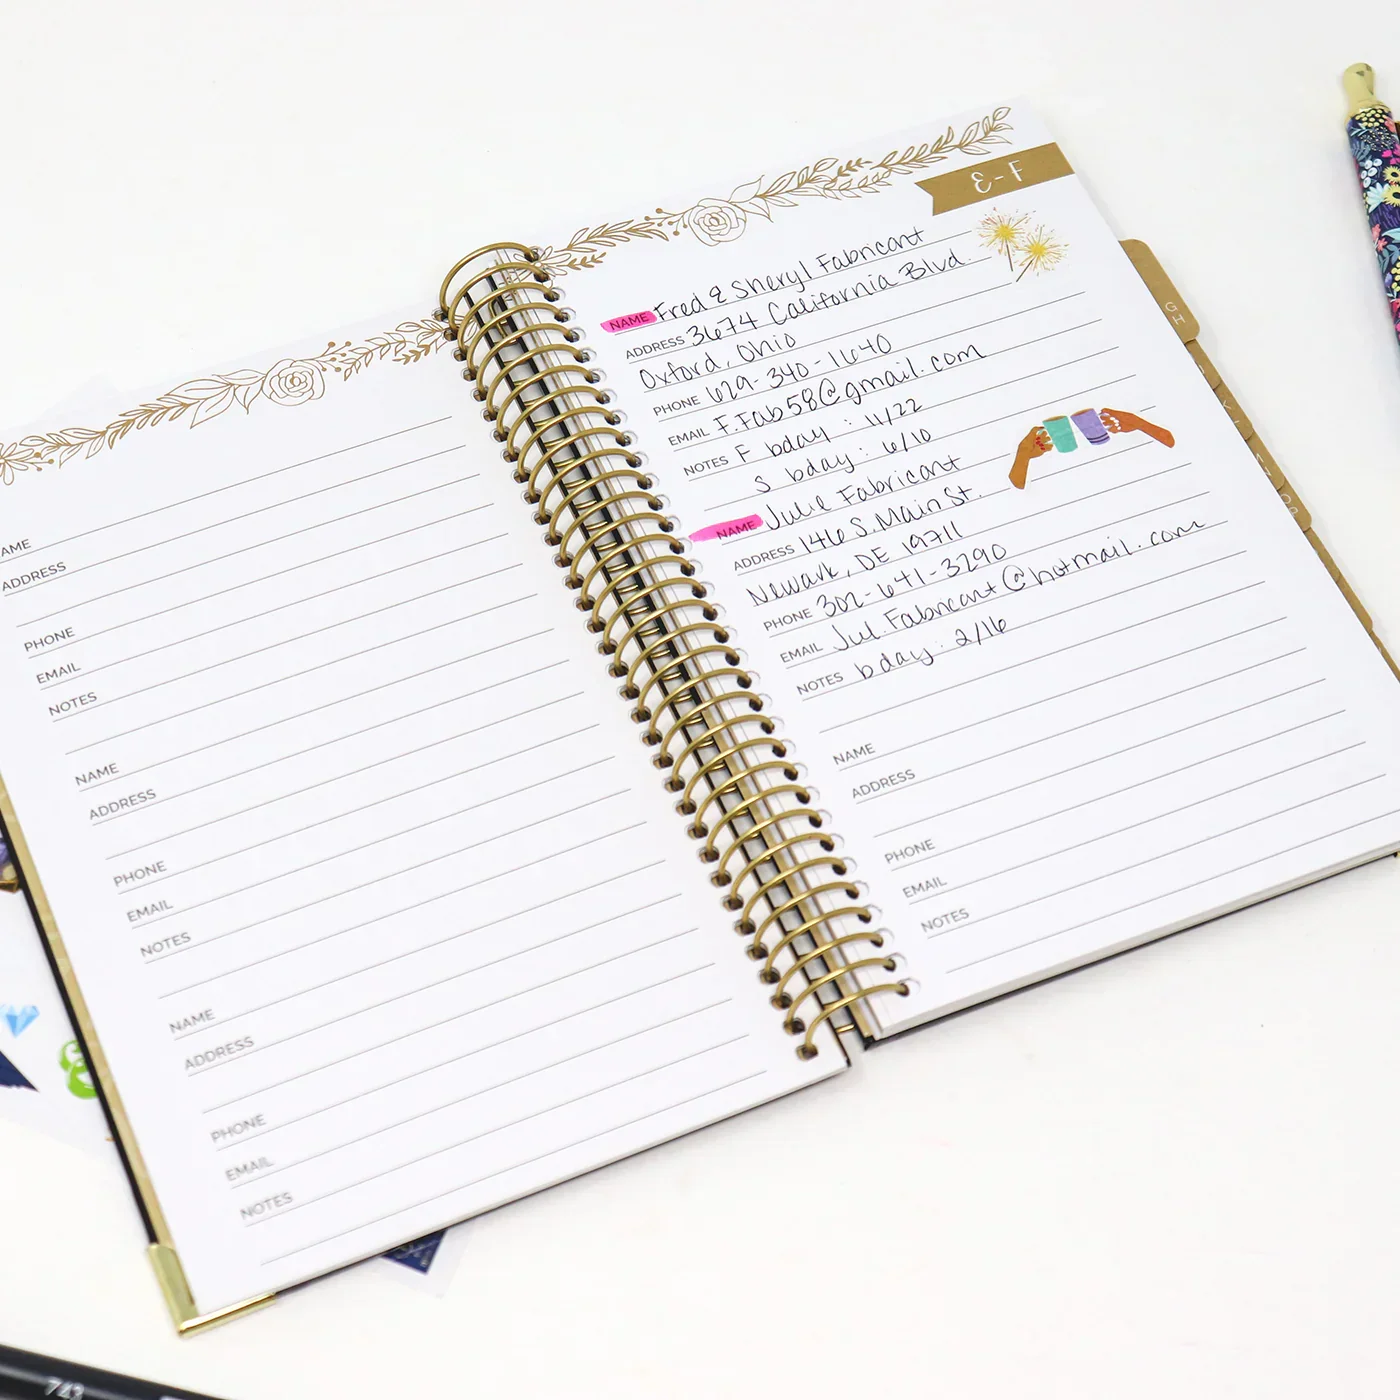 AME
ADDRESS
PHONE
EMAIL
NOTES
NAME
ADDRESS
PHONE
EMAIL
NOTES
NAME
ADDRESS
PHONE
EMAIL
NOTES
E-F
NAME Fred & Sheryl Fabricant
ADDRESS 3674 California Blvd.
Oxford, Ohio
PHONE 629-340-1640
EMAIL F.Fab58@gmail.com
NOTES F bday: 11/22
S bday: 6/10
NAME Julie Fabricant
ADDRESS 146 S. Main St.
Newark, DE 19711
PHONE 302-641-3290
EMAIL Jul.Fabricant@hotmail.com
NOTES bday: 2/16
NAME
ADDRESS
PHONE
EMAIL
NOTES
GH
743